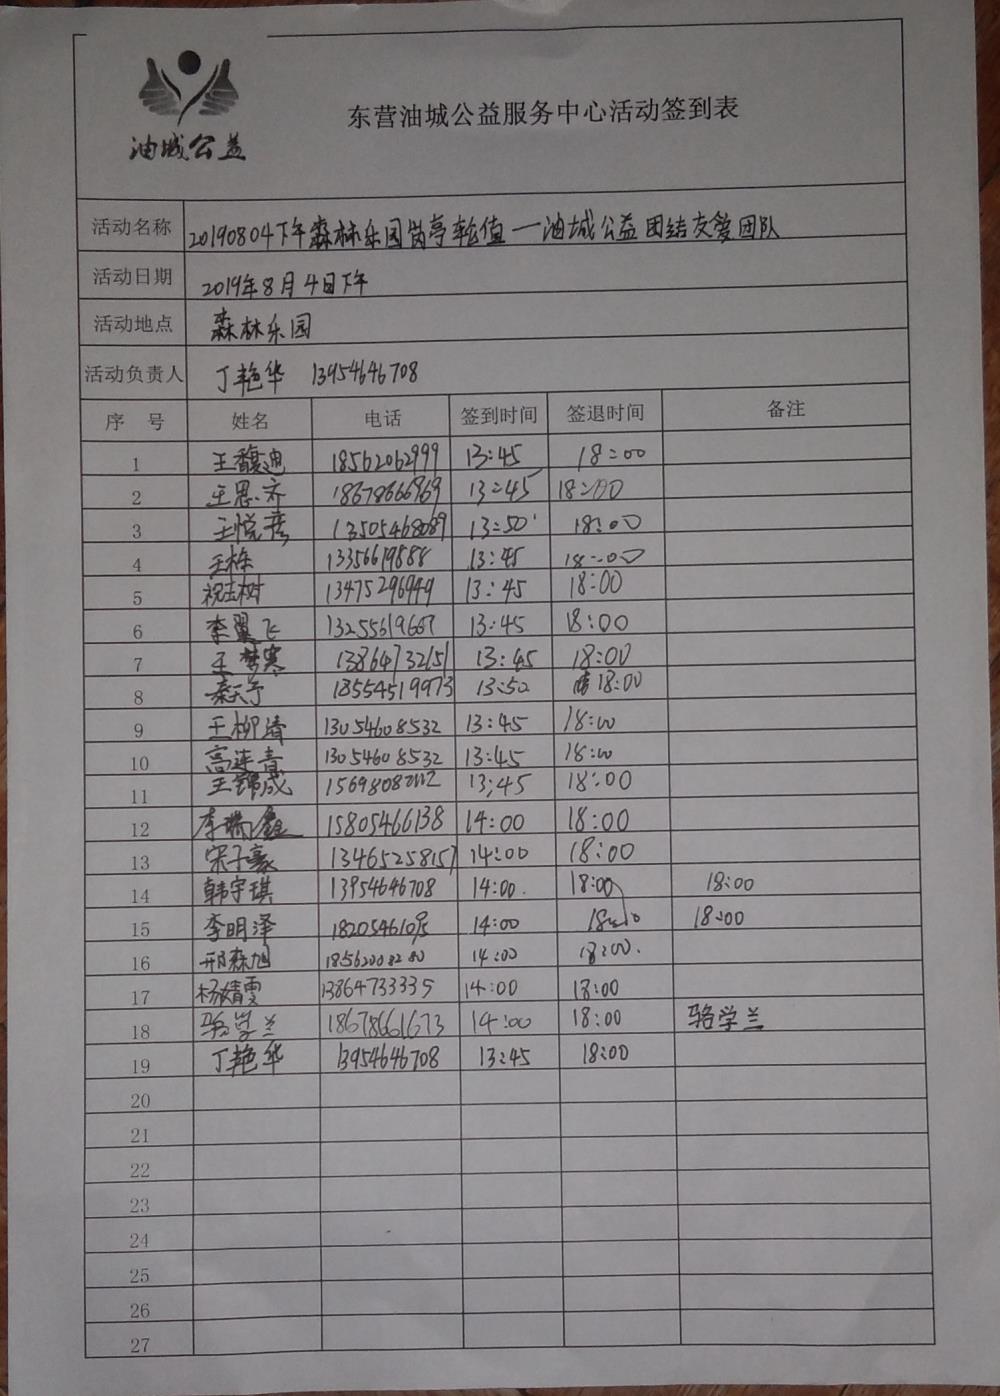 油城公益
东营油城公益服务中心活动签到表
活动名称 20190804下午森林乐园岗亭轮值—油城公益团结友爱团队
活动日期 2019年8月4日下午
活动地点 森林乐园
活动负责人 丁艳华 13954646708
序 号 姓名 电话 签到时间 签退时间 备注
1 王馥迪 18562062999 13:45 18:00
2 王思齐 18678666969 13:45 18:00
3 王悦彦 13505468089 13:50 18:00
4 王栋 13356619888 13:45 18:00
5 13475296949 13:45 18:00
6 李翼飞 13255619667 13:45 18:00
7 王梦寒 13864732151 13:45 18:00
8 秦天予 18554519973 13:50 18:00
9 王柳清 13054608532 13:45 18:00
10 高连青 13054608532 13:45 18:00
11 王锦成 13:45 18:00
12 李瑞鑫 15805466138 14:00 18:00
13 宋子豪 13465258157 14:00 18:00
14 韩宇琪 13954646708 14:00 18:00 18:00
15 李明泽 14:00 18:00
16 邢森旭 18562008280 14:00 18:00
17 杨婧雯 13864733335 14:00 18:00
18 骆学兰 18678661673 14:00 18:00 骆学兰
19 丁艳华 13954646708 13:45 18:00
20
21
22
23
24
25
26
27